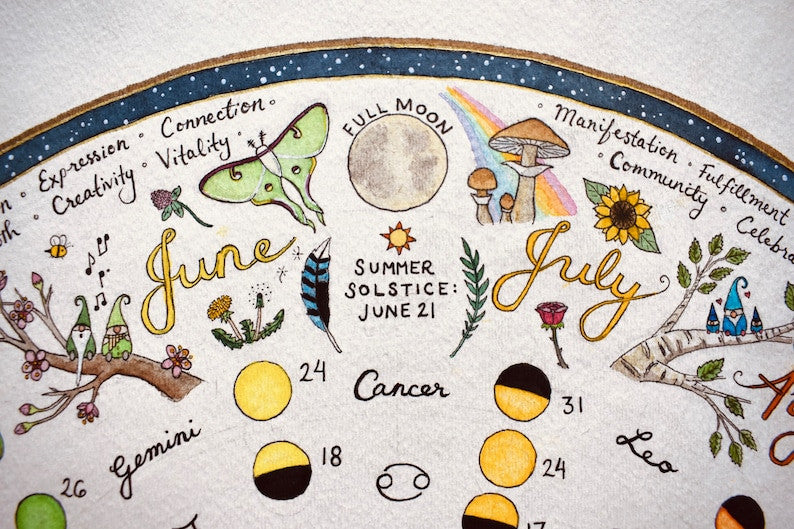 Connection
Expression
Creativity
Vitality
FULL MOON
Manifestation
Fulfillment
Community
June
SUMMER
SOLSTICE:
JUNE 21
July
24
Cancer
31
Gemini
18
24
Leo
26
17